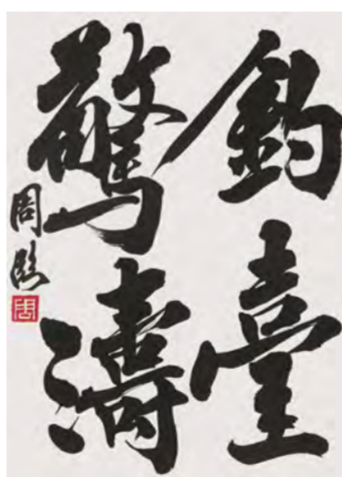 釣臺
驚濤
周
周